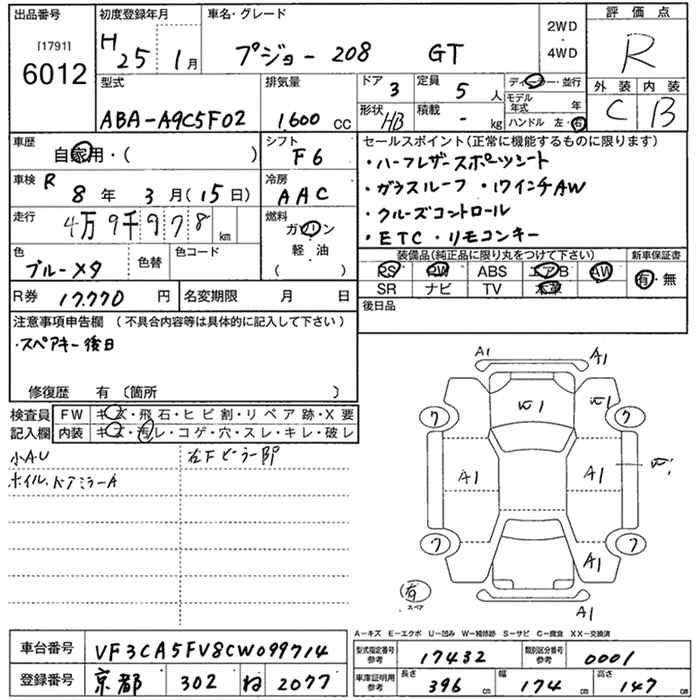 出品番号 初度登録年月 車名・グレード 2WD ・ 4WD 評価点
[1791]
6012 H 25 1月 プジョー 208 GT R
型式 排気量 ドア 3 定員 5 人 ディーラー・並行 外装 内装
モデル年式 年
ABA-A9C5F02 1,600 CC 形状 HB 積載 - kg ハンドル 左・右 C B
車歴 自家用・( ) シフト F6 セールスポイント(正常に機能するものに限ります)
・ハーフレザースポーツシート
車検 R 8年 3月(15日) 冷房 AAC ・ガラスルーフ ・17インチAW
走行 4万9千978km 燃料 ガソリン ・クルーズコントロール
軽・油 ・ETC ・リモコンキー
( )
色 ブルーメタ 色替 色コード 装備品(純正品に限り丸をつけて下さい) 新車保証書
PS PW ABS エアB AW 有・無
R券 17,770 円 名変期限 月 日 SR ナビ TV 本革
注意事項申告欄 (不具合内容等は具体的に記入して下さい) 後日品
・スペアキー後日
修復歴 有 〔箇所 〕
検査員 FW キズ・飛石・ヒビ割・リペア跡・X要
記入欄 内装 キズ・汚レ・コゲ・穴・スレ・キレ・破レ
小AU 右Fピラー部
ホイル、ドアミラーA
A1 A1
1 1
ワ ワ
A1 A1 A1
ワ ワ
A1
有 スペア
A1
A-キズ E-エクボ U-凹み W-補修跡 S-サビ C-腐食 XX-交換済
車台番号 VF3CA5FV8CW099714 型式指定番号 参考 17432 類別区分番号 参考 0001
登録番号 京都 302 ね 2077 車庫証明用 参考 長さ 396 cm 幅 174 cm 高さ 147 cm